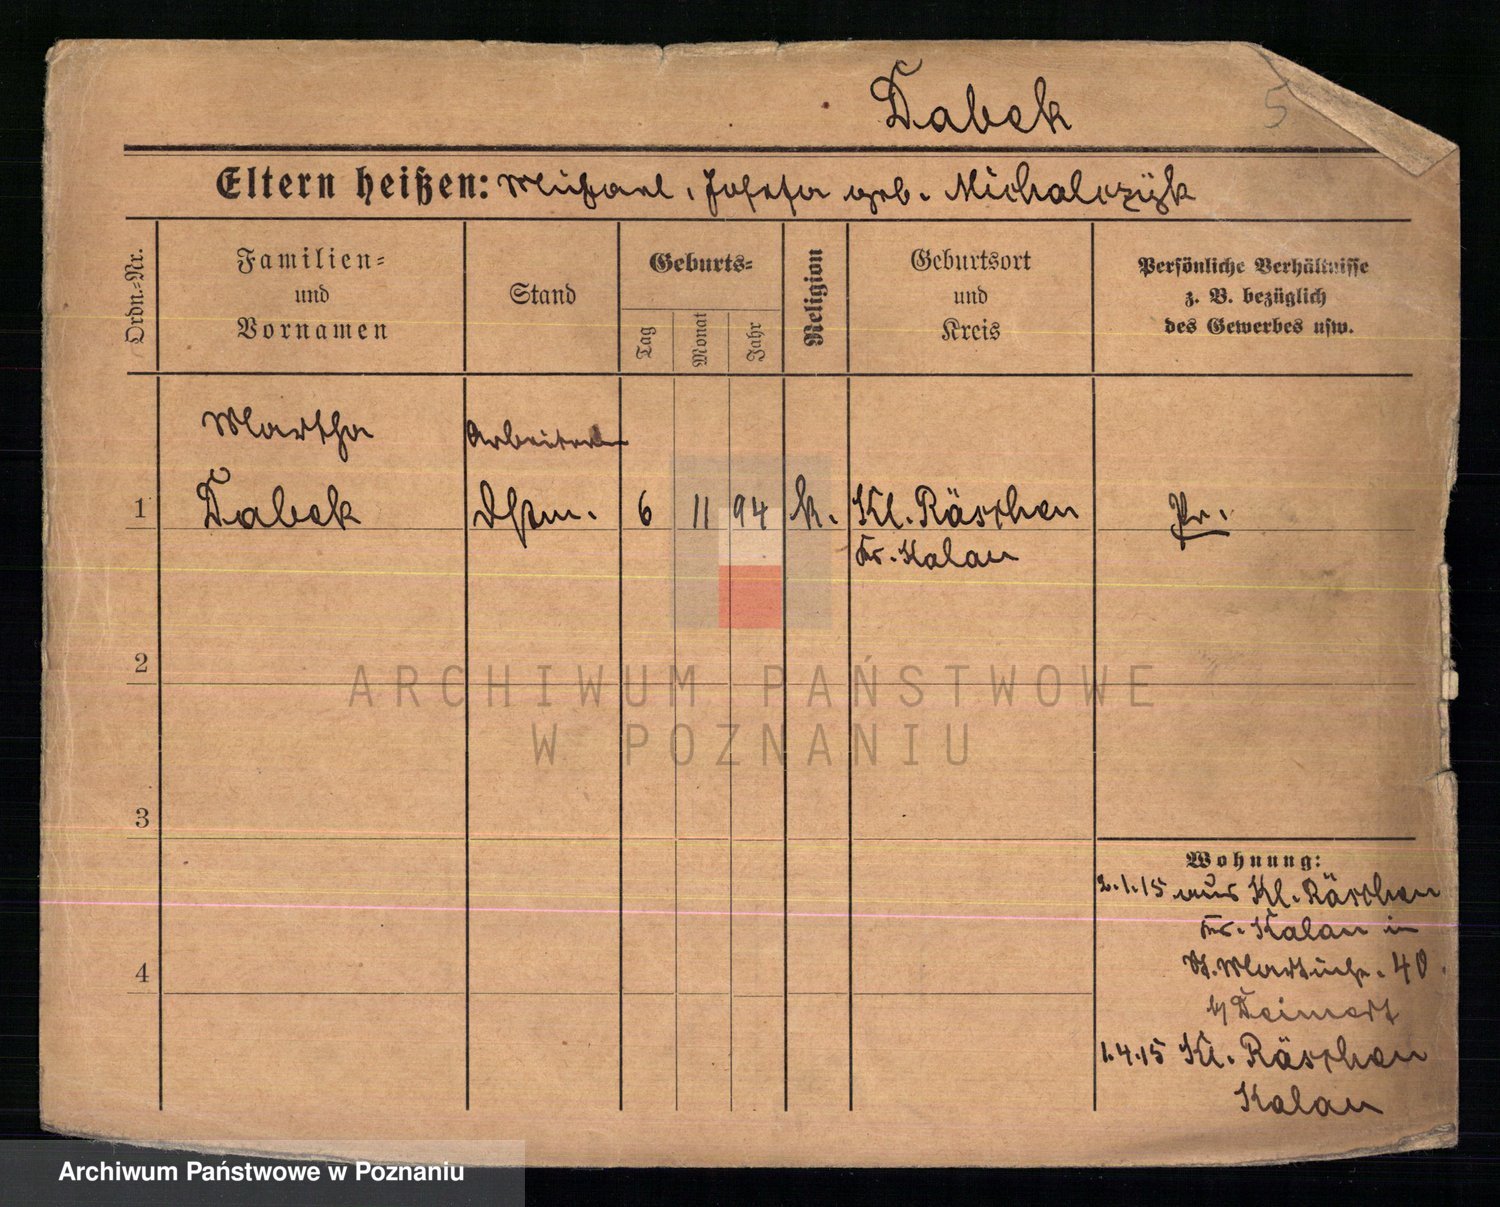 Dabek
5
Eltern heißen: Michael, Josefa geb. Michalczÿk
Ordn.-Nr.
Familien-
und
Vornamen
Stand
Geburts-
Tag
Monat
Jahr
Religion
Geburtsort
und
Kreis
Persönliche Verhältnisse
z. B. bezüglich
des Gewerbes usw.
Martha
Arbeiterin
1 Dabek Dstm. 6 11 94 k. Kl. Räschen Pr.
Kr. Kalau
2
3
4
Wohnung:
2.1.15 aus Kl. Räschen
Kr. Kalau in
St. Martinstr. 40.
b/ Deimert
1.4.15 Kl. Räschen
Kalau
ARCHIWUM PAŃSTWOWE
W POZNANIU
Archiwum Państwowe w Poznaniu